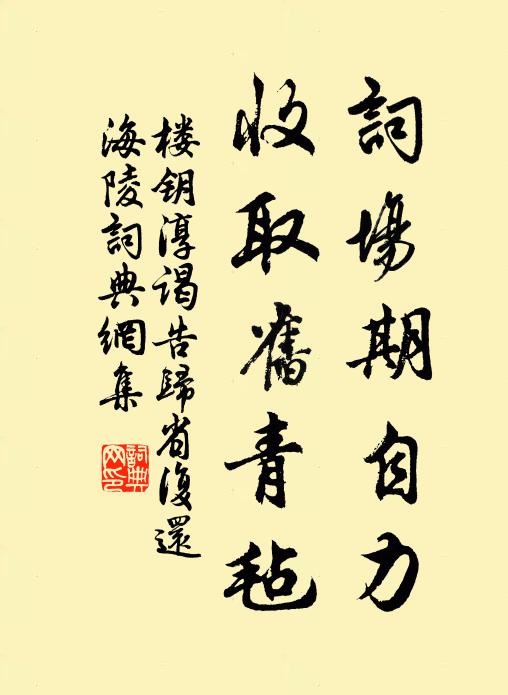 詞場期自力
收取舊青毡
楼钥淳谒告歸省復還
海陵詞典網集
詞典网印